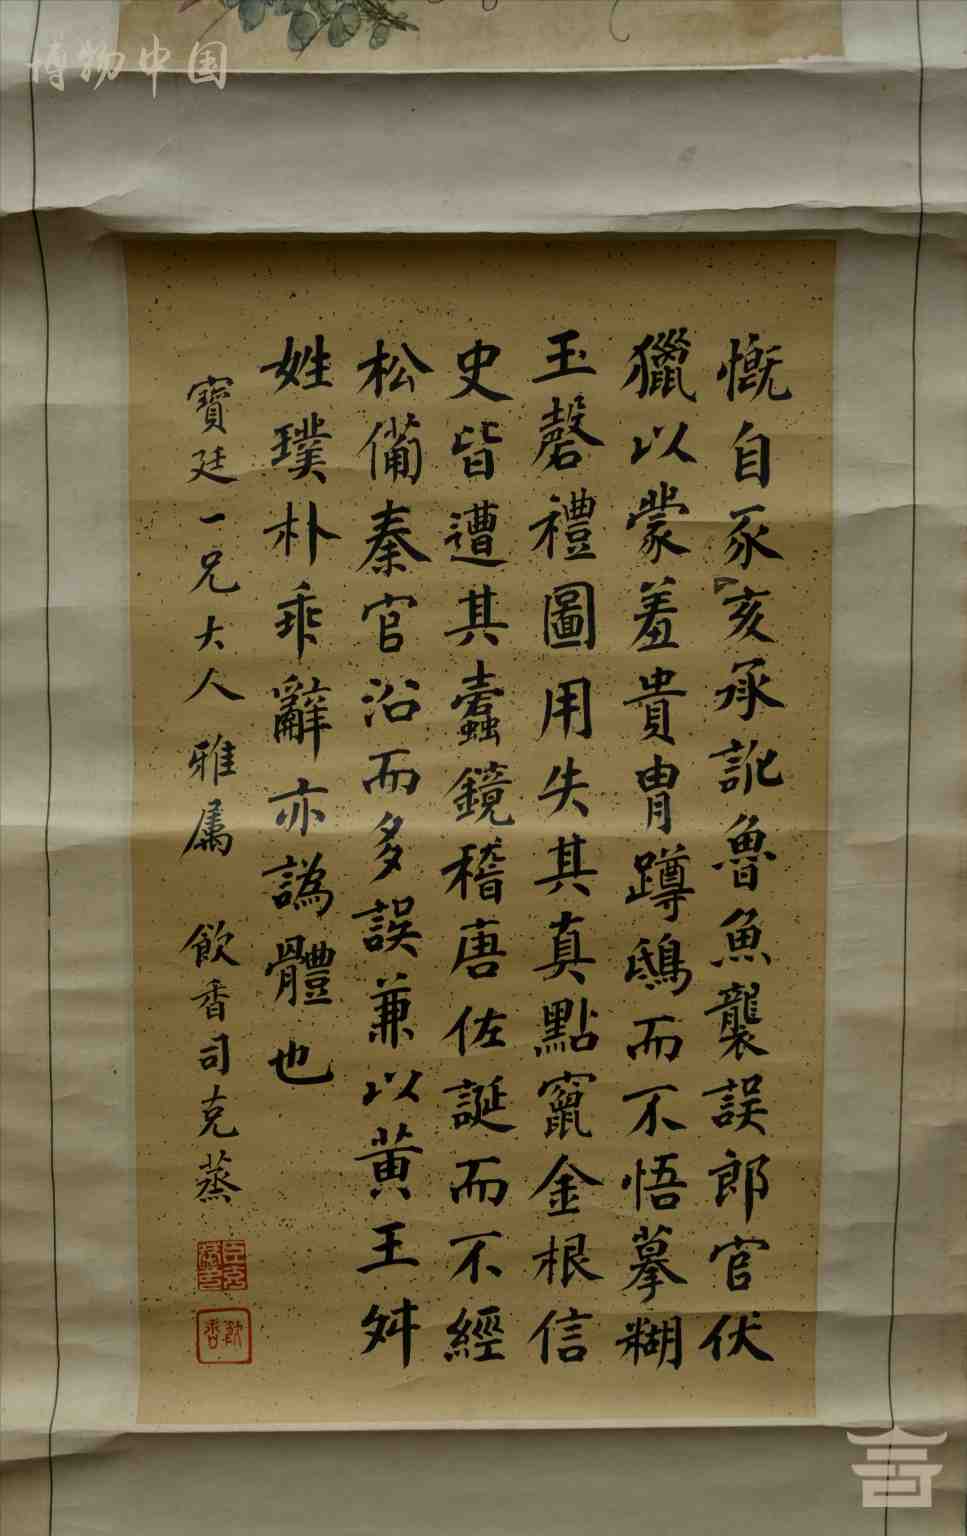 博物中国
慨自豕亥承訛魯魚襲誤郎官伏
獵以蒙羞貴冑蹲鴟而不悟摹糊
玉磬禮圖用失其真點竄金根信
史皆遭其蠹鏡稽唐佐誕而不經
松俻秦官沿而多誤兼以黄王舛
姓璞朴乖辭亦譌體也
寶廷一兄大人雅属 飲香司克蒸